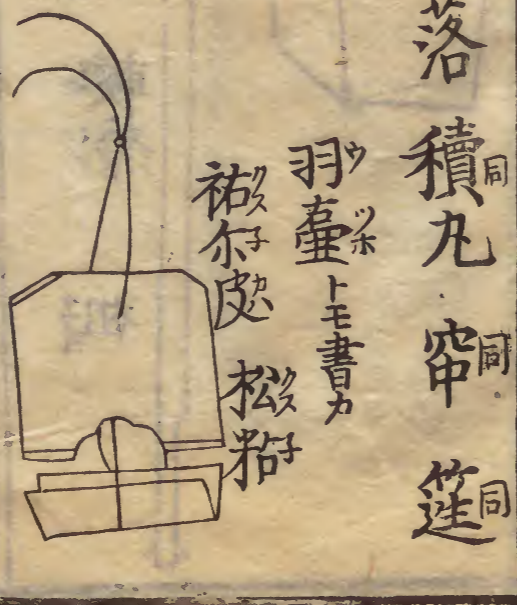 落 積同丸 同 同
羽ウ壷ツホトモ書カ
祐クス尓子皮 松クス粘子